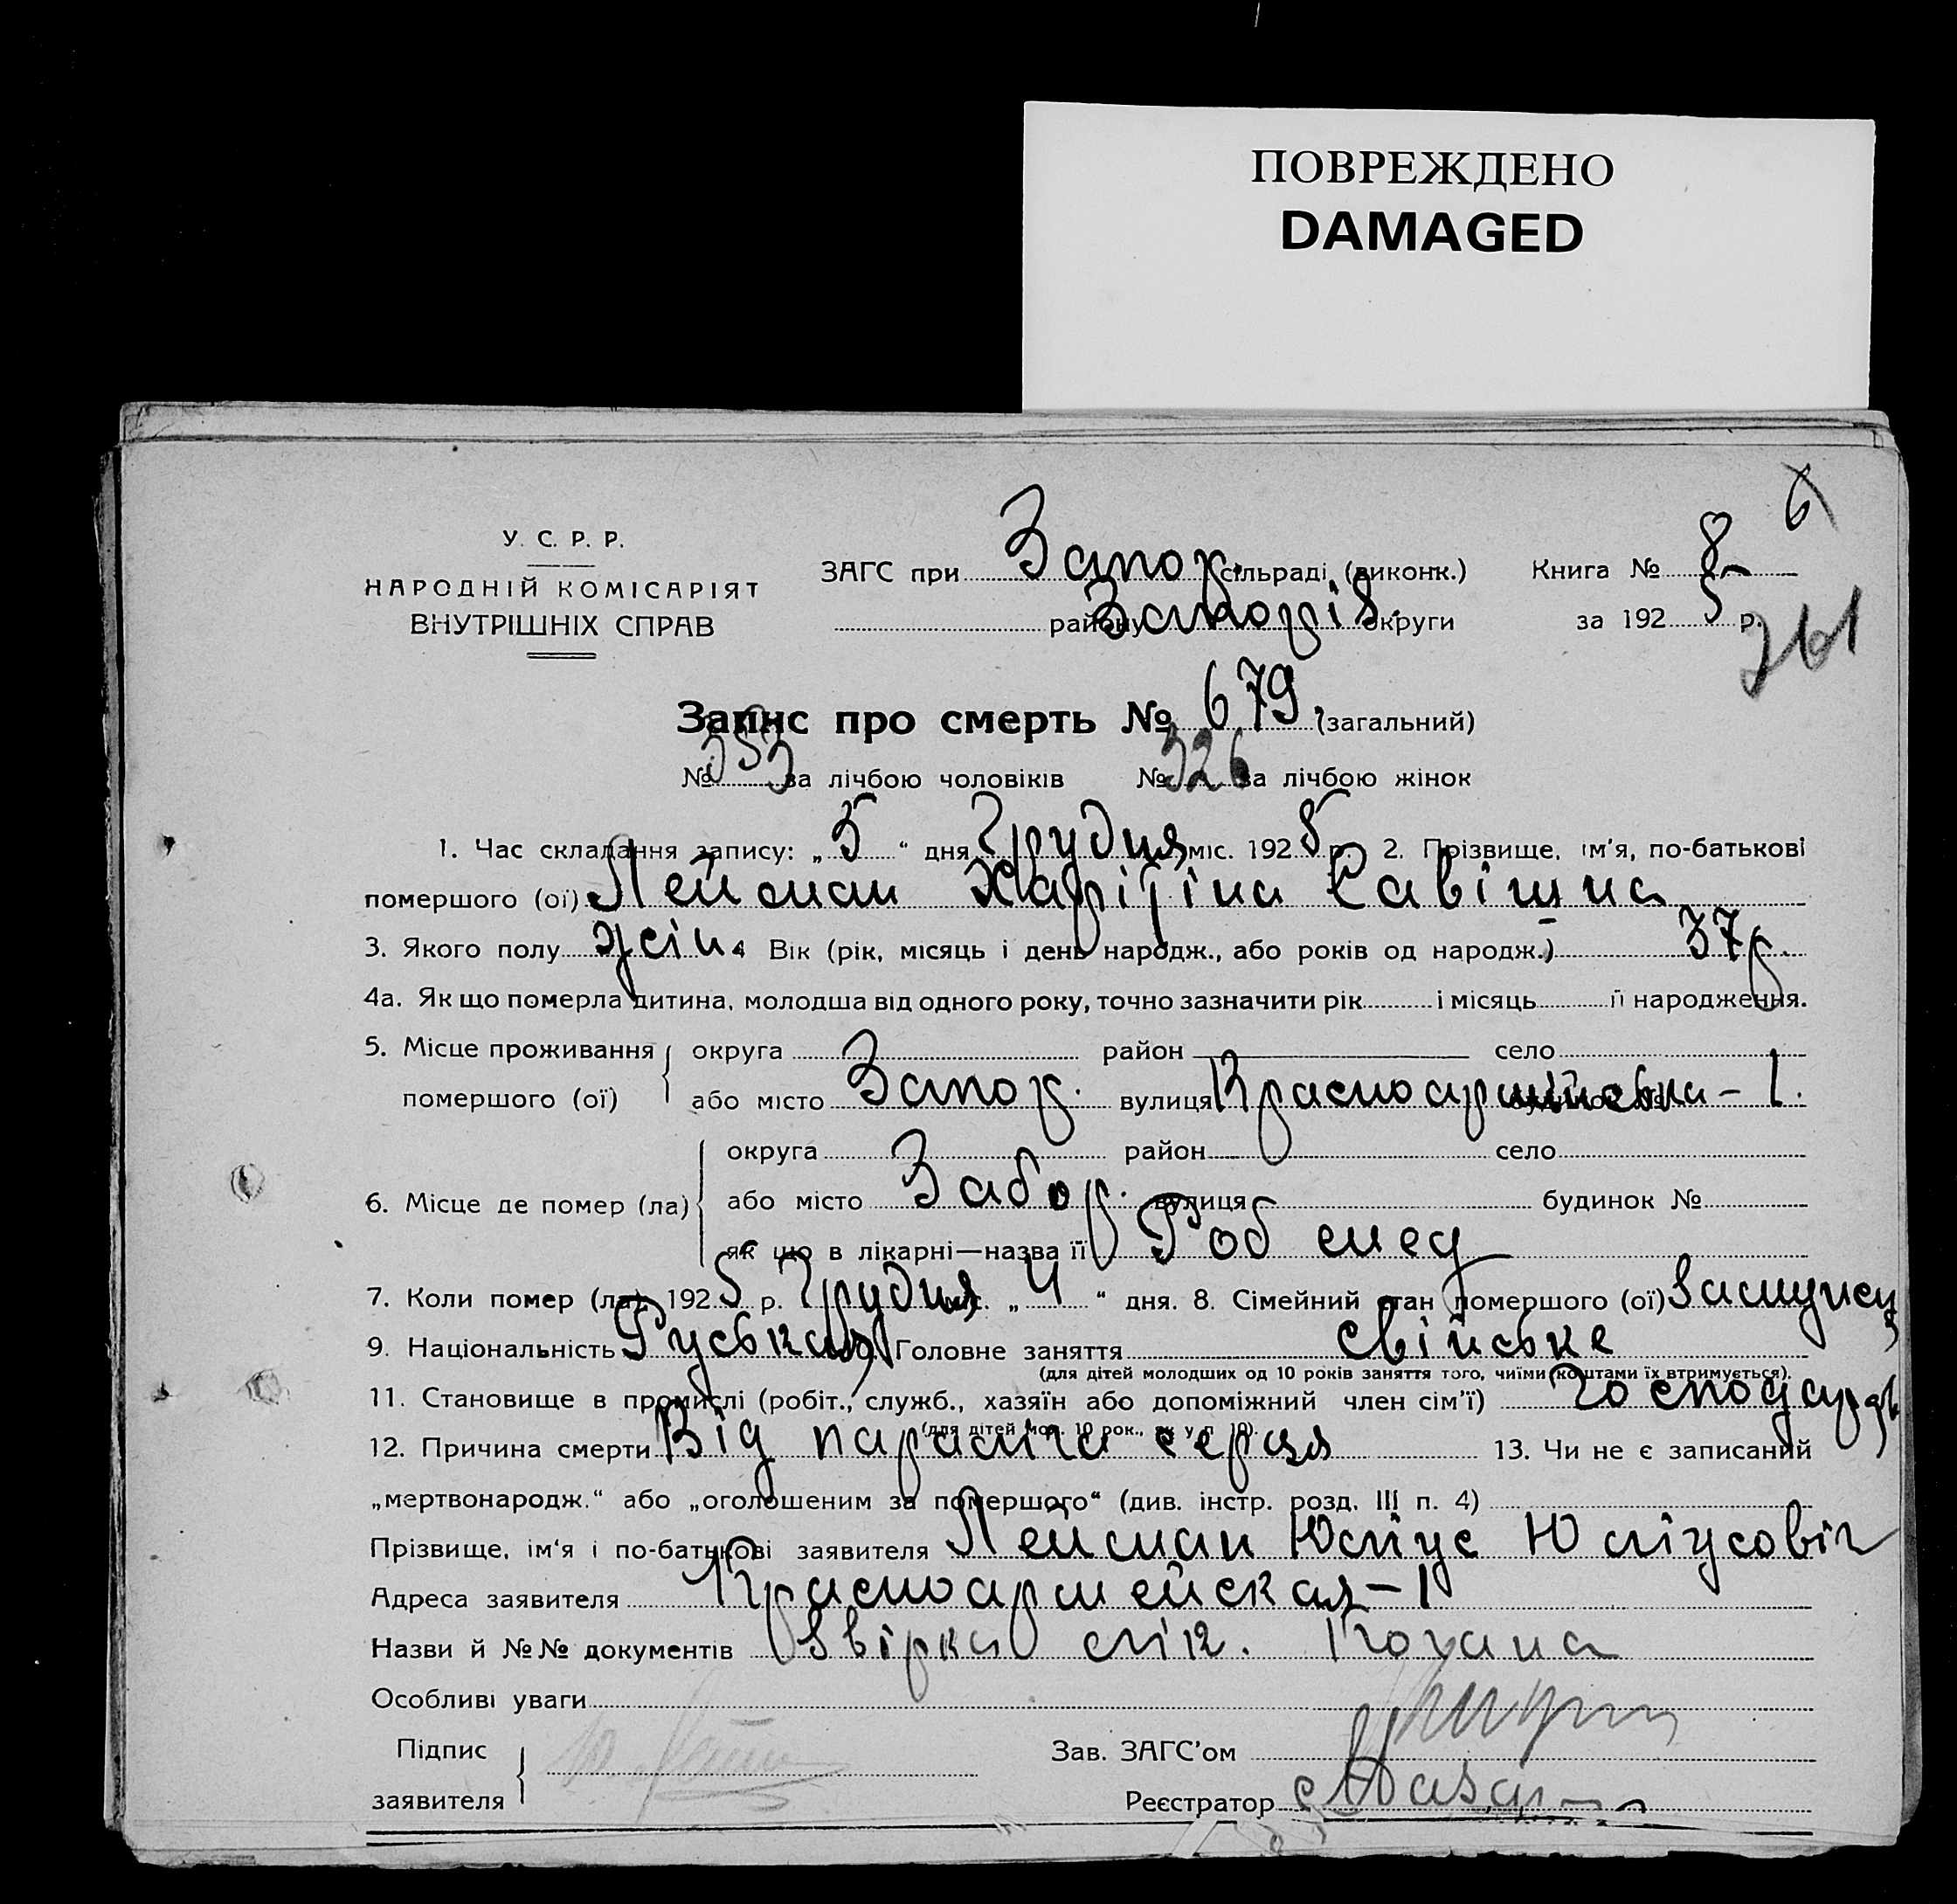 ПОВРЕЖДЕНО
DAMAGED
6
У. С. Р. Р.
НАРОДНІЙ КОМІСАРІЯТ
ВНУТРІШНІХ СПРАВ
ЗАГС при Запор. сільраді (виконк.) Книга № 8
району Запоріз. округи за 1925 р.
261
Запис про смерть № 679. (загальний)
№ 353 за лічбою чоловіків № 326 за лічбою жінок
1. Час складання запису: „5“ дня Грудня міс. 1925 р. 2. Прізвище, ім'я, по-батькові
помершого (ої) Лейман Харітіна Савішна
3. Якого полу жін. 4 Вік (рік, місяць і день народж., або років од народж.) 37 р.
4а. Як що померла дитина, молодша від одного року, точно зазначити рік і місяць її народження.
5. Місце проживання помершого (ої) округа район село
або місто Запор. вулиця Красноармійська - 1.
6. Місце де помер (ла) округа район село
або місто Забор. вулиця будинок №
як що в лікарні—назва її Роб мед
7. Коли помер (ла) 1925 р. Грудня міс. „4“ дня. 8. Сімейний стан помершого (ої) Замужец
9. Національність Руська Головне заняття свійське
(для дітей молодших од 10 років заняття того, чиїми коштами їх втримується).
11. Становище в промислі (робіт., служб., хазяїн або допоміжний член сім'ї) Господар
(для дітей мол. 10 рок., як у п. 10).
12. Причина смерти Від параліча серця 13. Чи не є записаний
„мертвонародж.“ або „оголошеним за помершого“ (див. інстр. розд. III п. 4)
Прізвище, ім'я і по-батькові заявителя Лейман Юліус Юліусовіч
Адреса заявителя Красноармейская - 1
Назви й №№ документів Звірка лік. Когана
Особливі уваги
Підпис заявителя Зав. ЗАГС'ом
Реєстратор